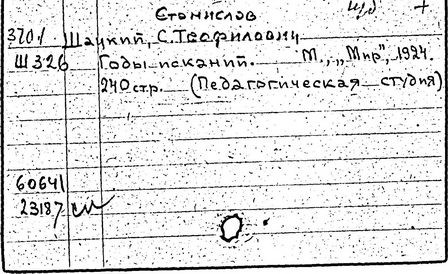 Станислав
370.1 Шацкий, С. Теофилович
Ш326 Годы исканий. М., „Мир", 1924.
240 стр. (Педагогическая студия)
60641
23187